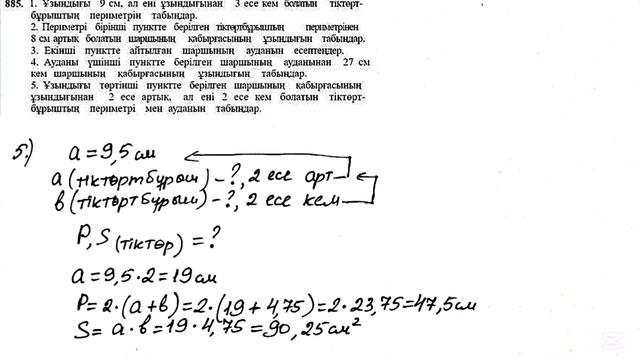 885. 1. Ұзындығы 9 см, ал ені ұзындығынан 3 есе кем болатын тіктөрт-
бұрыштың периметрін табыңдар.
2. Периметрі бірінші пунктте берілген тіктөртбұрыштың периметрінен
8 см артық болатын шаршының қабырғасының ұзындығын табыңдар.
3. Екінші пунктте айтылған шаршының ауданын есептеңдер.
4. Ауданы үшінші пунктте берілген шаршының ауданынан 27 см
кем шаршының қабырғасының ұзындығын табыңдар.
5. Ұзындығы төртінші пунктте берілген шаршының қабырғасының
ұзындығынан 2 есе артық, ал ені 2 есе кем болатын тіктөрт-
бұрыштың периметрі мен ауданын табыңдар.
5.) a = 9,5 см
a (тіктөртбұрыш) - ?, 2 есе арт
b (тіктөртбұрыш) - ?, 2 есе кем
P, S (тіктөр) = ?
a = 9,5 · 2 = 19 см
P = 2 · (a + b) = 2 · (19 + 4,75) = 2 · 23,75 = 47,5 см
S = a · b = 19 · 4,75 = 90,25 см²